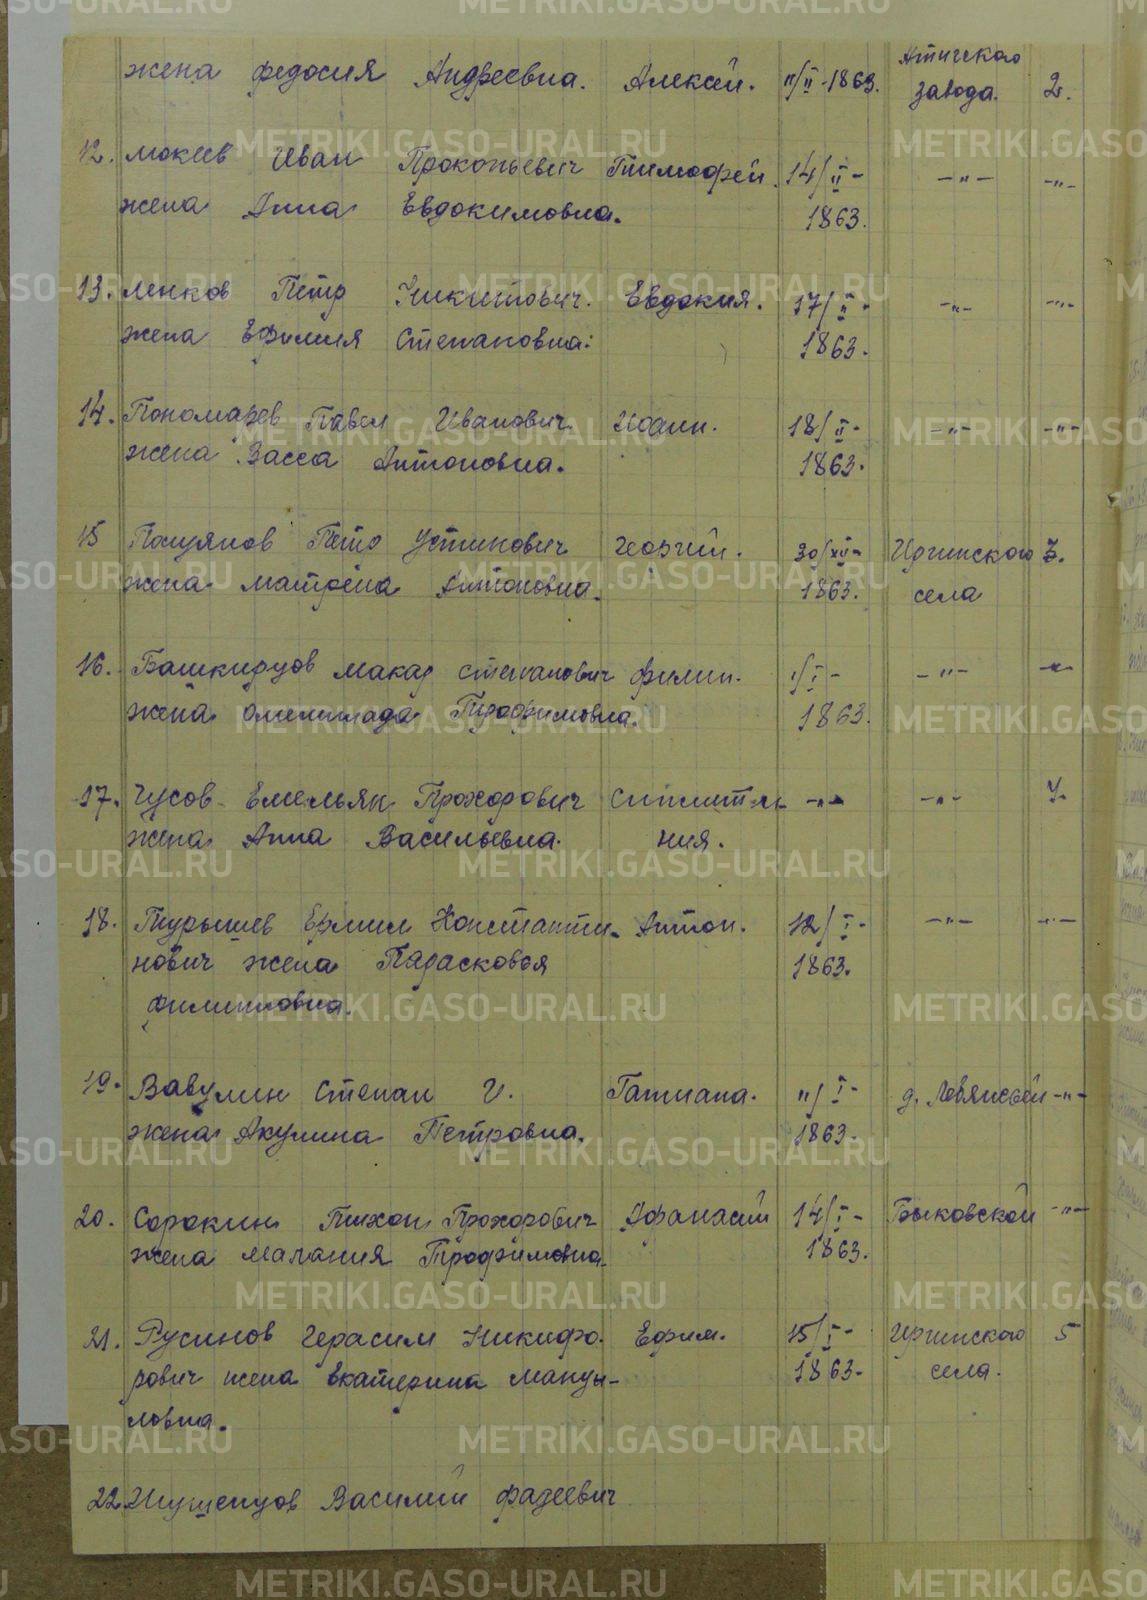 жена Федосия Андреевна. Алексей. 11/II-1863. Атигского
завода. 2.
12. Мокеев Иван Прокопьевич Тимофей. 14/II- -"- -"-
жена Анна Евдокимовна. 1863.
13. Ленков Петр Никитович. Евдокия. 17/II- -"- -"-
жена Ефимия Степановна. 1863.
14. Пономарев Павел Иванович. Иоанн. 18/II- -"- -"-
жена Васса Антоновна. 1863.
15 Петр Устинович Георгий. 30/XII- Иргинского 3.
жена Матрена Антоновна. 1863. села
16. Башкирцов Макар Степанович Филип. 1/I- -"- -"-
жена Трофимовна. 1863.
17. Чусов Емельян Прохорович -"- -"- 4.
жена Анна Васильевна. ния.
18. Турышев Ермил Константи- Антон. 12/I- -"- -"-
нович жена Парасковья 1863.
Филипповна.
19. Вавулин Степан И. Татиана. 11/I- д. -"-
жена Акулина Петровна. 1863.
20. Сорокин Тихон Прохорович Афанасий 14/I- Быковской -"-
жена Малания Трофимовна. 1863.
21. Русинов Герасим Никифо- Ефим. 15/I- Иргинского 5
рович жена Екатерина Мануи- 1863- села.
ловна.
22. Василий Фадеевич
METRIKI.GASO-URAL.RU